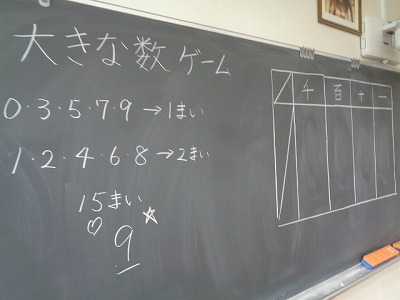 大きな数ゲーム
0・3・5・7・9→1まい
1・2・4・6・8→2まい
15まい
♡ 9 ☆
千 百 十 一